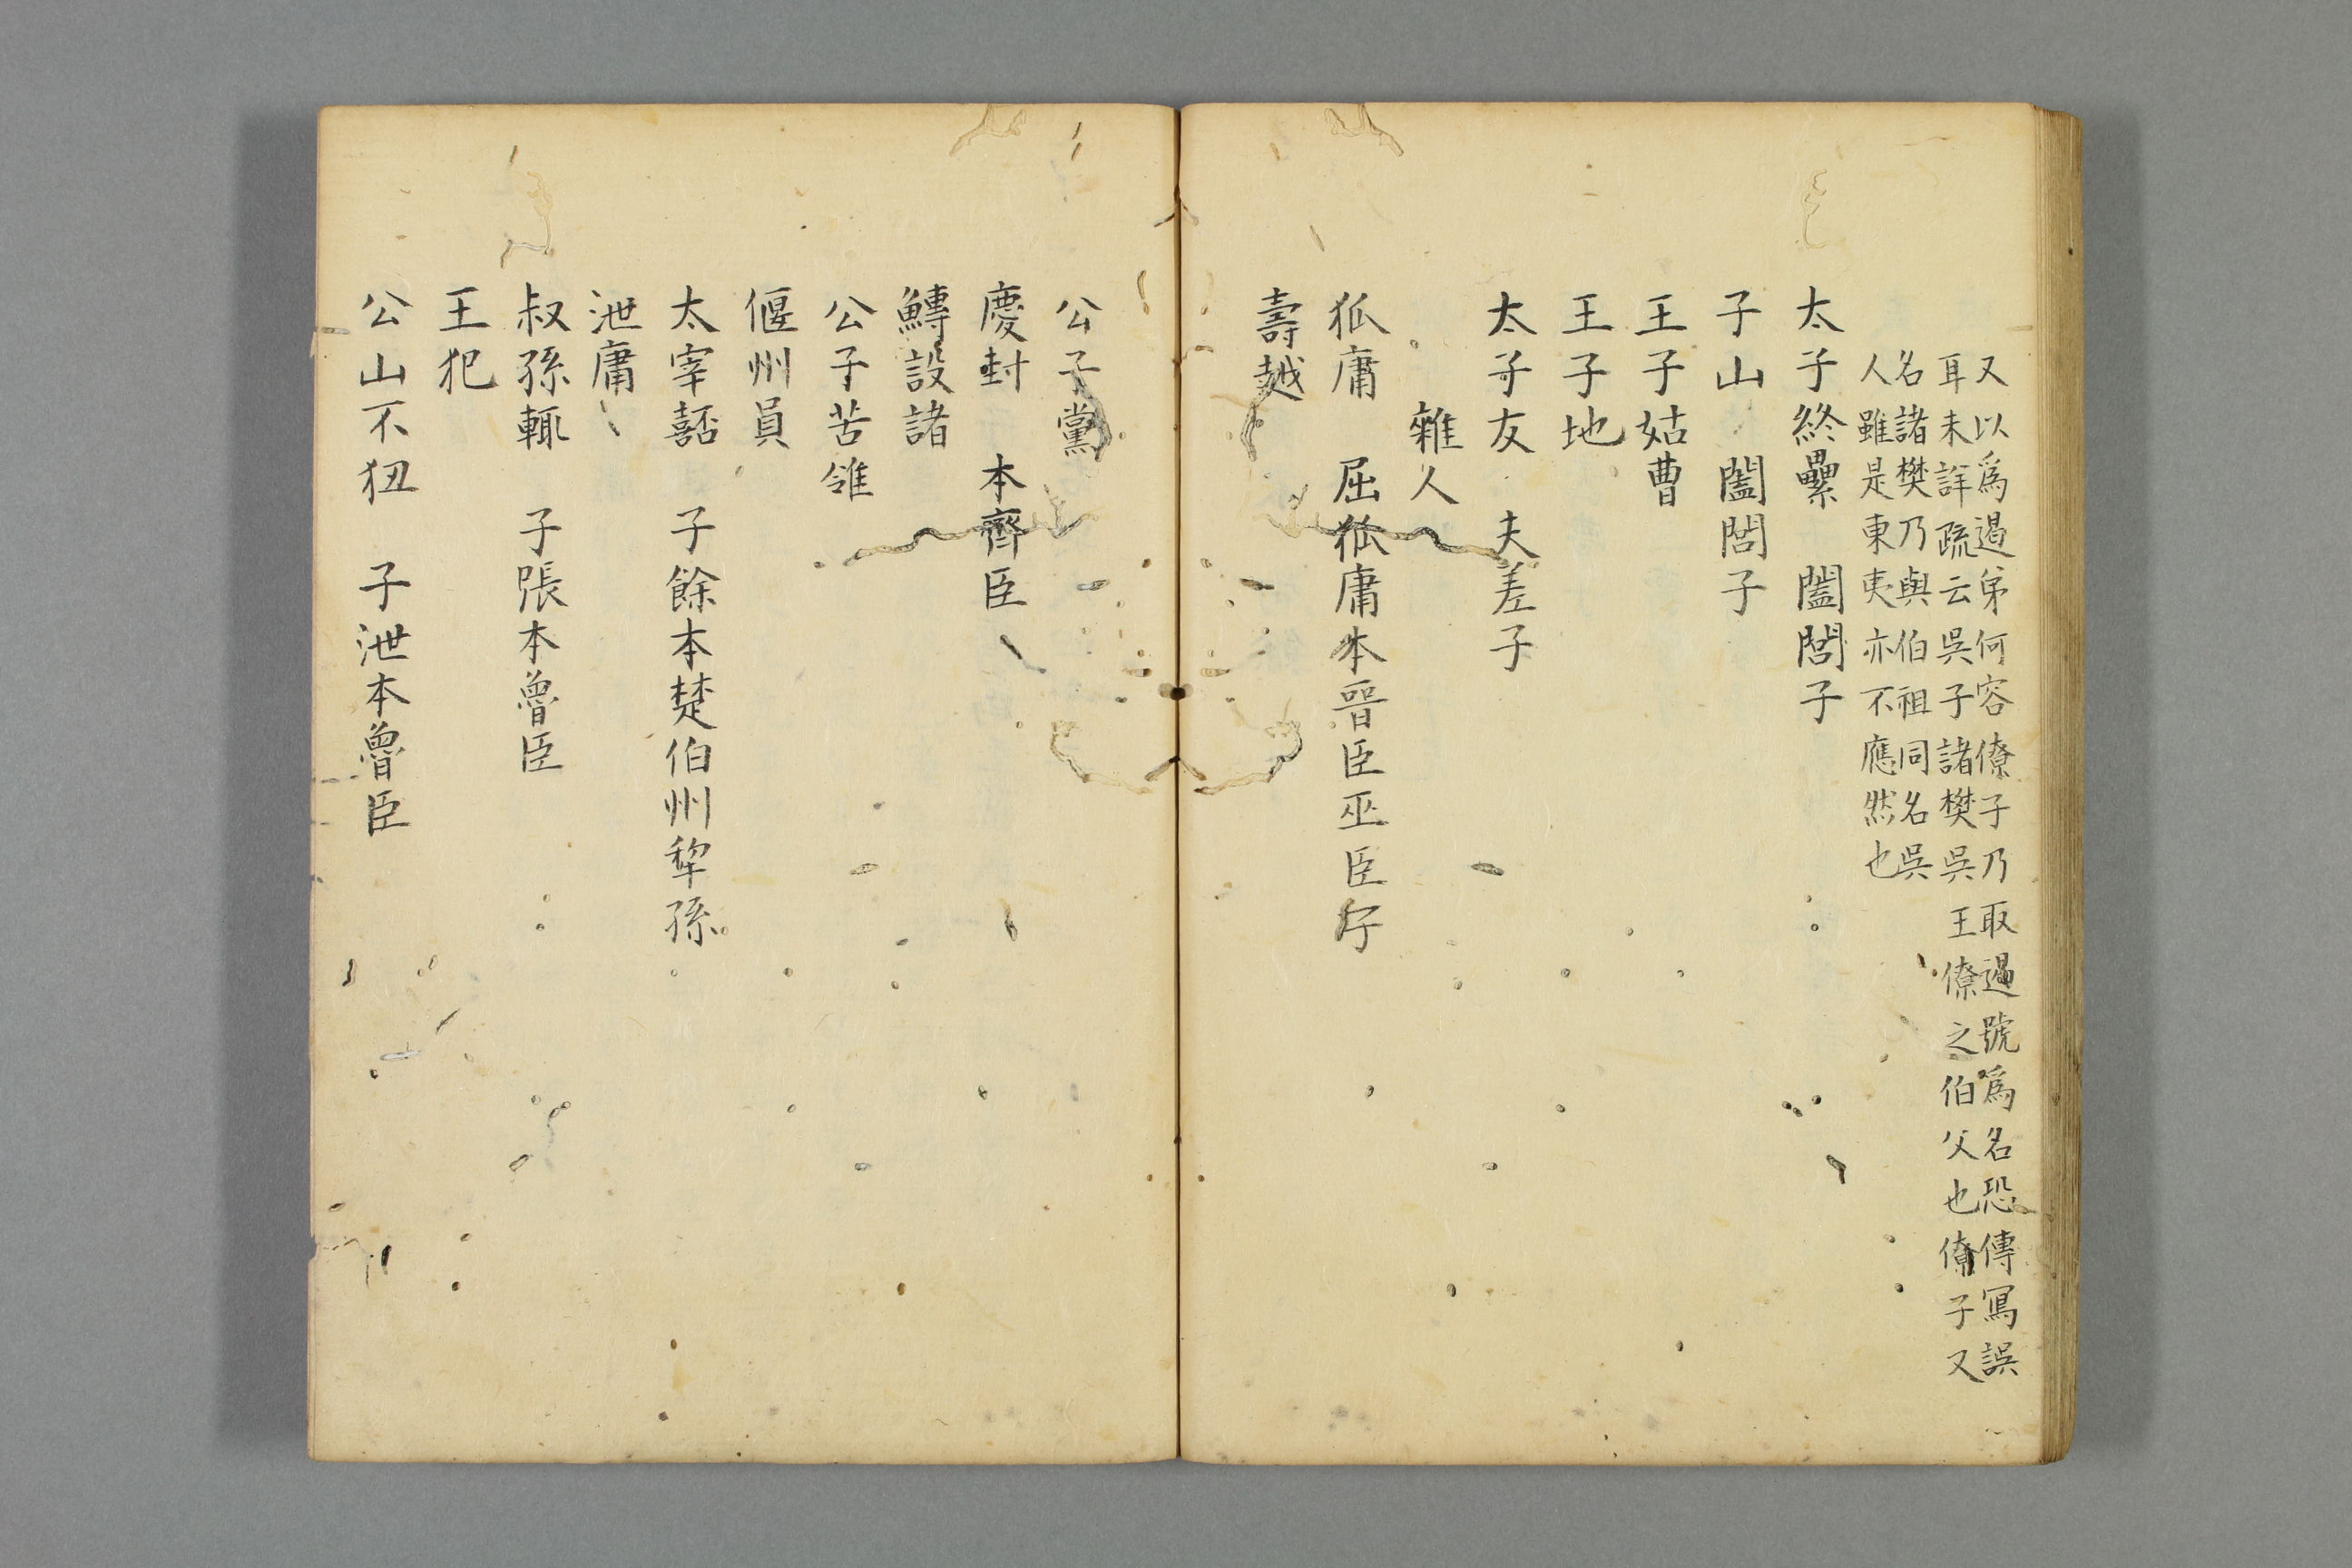 又以爲過弟何容僚子乃取過號爲名恐傳冩誤
耳未詳疏云吳子諸樊吳王僚之伯父也僚子又
名諸樊乃與伯祖同名吳
人雖是東夷亦不應然也
太子終纍 闔閭子
子山 闔閭子
王子姑曹
王子地
太子友 夫差子
雜人
狐庸 屈狐庸本晉臣巫臣子
壽越
公子黨
慶封 本齊臣
鱄設諸
公子苦雂
偃州員
太宰嚭 子餘本楚伯州犂孫
泄庸
叔孫輒 子張本魯臣
王犯
公山不狃 子泄本魯臣